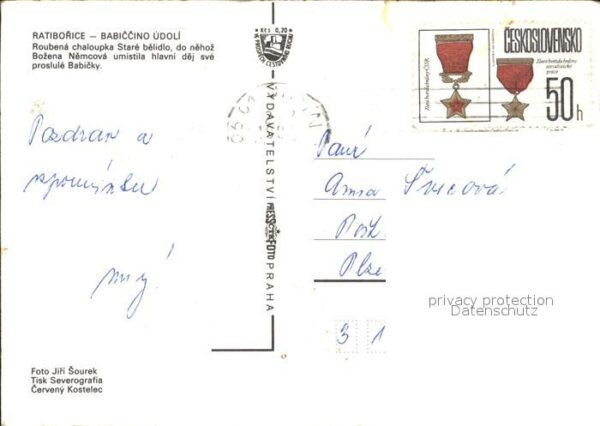 RATIBOŘICE – BABIČČINO ÚDOLÍ
Roubená chaloupka Staré bělidlo, do něhož
Božena Němcová umístila hlavní děj své
proslulé Babičky.
Kčs 0,20
ČESKOSLOVENSKO
50h
Pozdrav a
vzpomínku
Paní
Anna Švecová
Plze
3 1
VYDAVATELSTVÍ PRESSFOTO PRAHA
privacy protection
Datenschutz
Foto Jiří Šourek
Tisk Severografia
Červený Kostelec